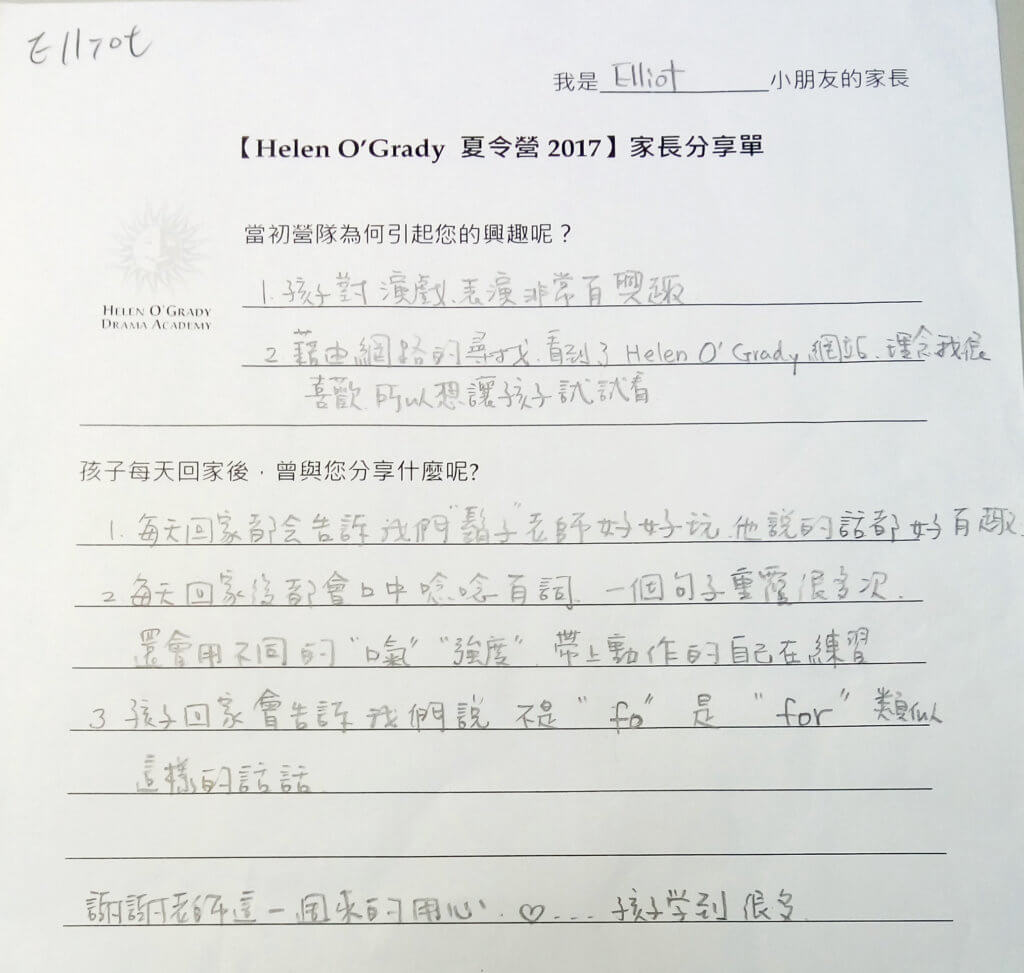 Elliot
我是 Elliot 小朋友的家長
【Helen O'Grady 夏令營 2017】家長分享單
當初營隊為何引起您的興趣呢？
1. 孩子對演戲、表演非常有興趣
HELEN O'GRADY
DRAMA ACADEMY
2. 藉由網路的尋找,看到了 Helen O' Grady 網站、理念我很
喜歡,所以想讓孩子試試看
孩子每天回家後，曾與您分享什麼呢?
1. 每天回家都会告訴我們"鬍子"老師好好玩,他說的話都好有趣.
2. 每天回家後都會口中唸唸有詞, 一個句子重覆很多次,
還會用不同的"口氣" "強度", 帶上動作的自己在練習
3 孩子回家會告訴我們說 不是 "fo" 是 "for" 類似
這樣的話話
謝謝老師這一週來的用心、♡... 孩子学到很多